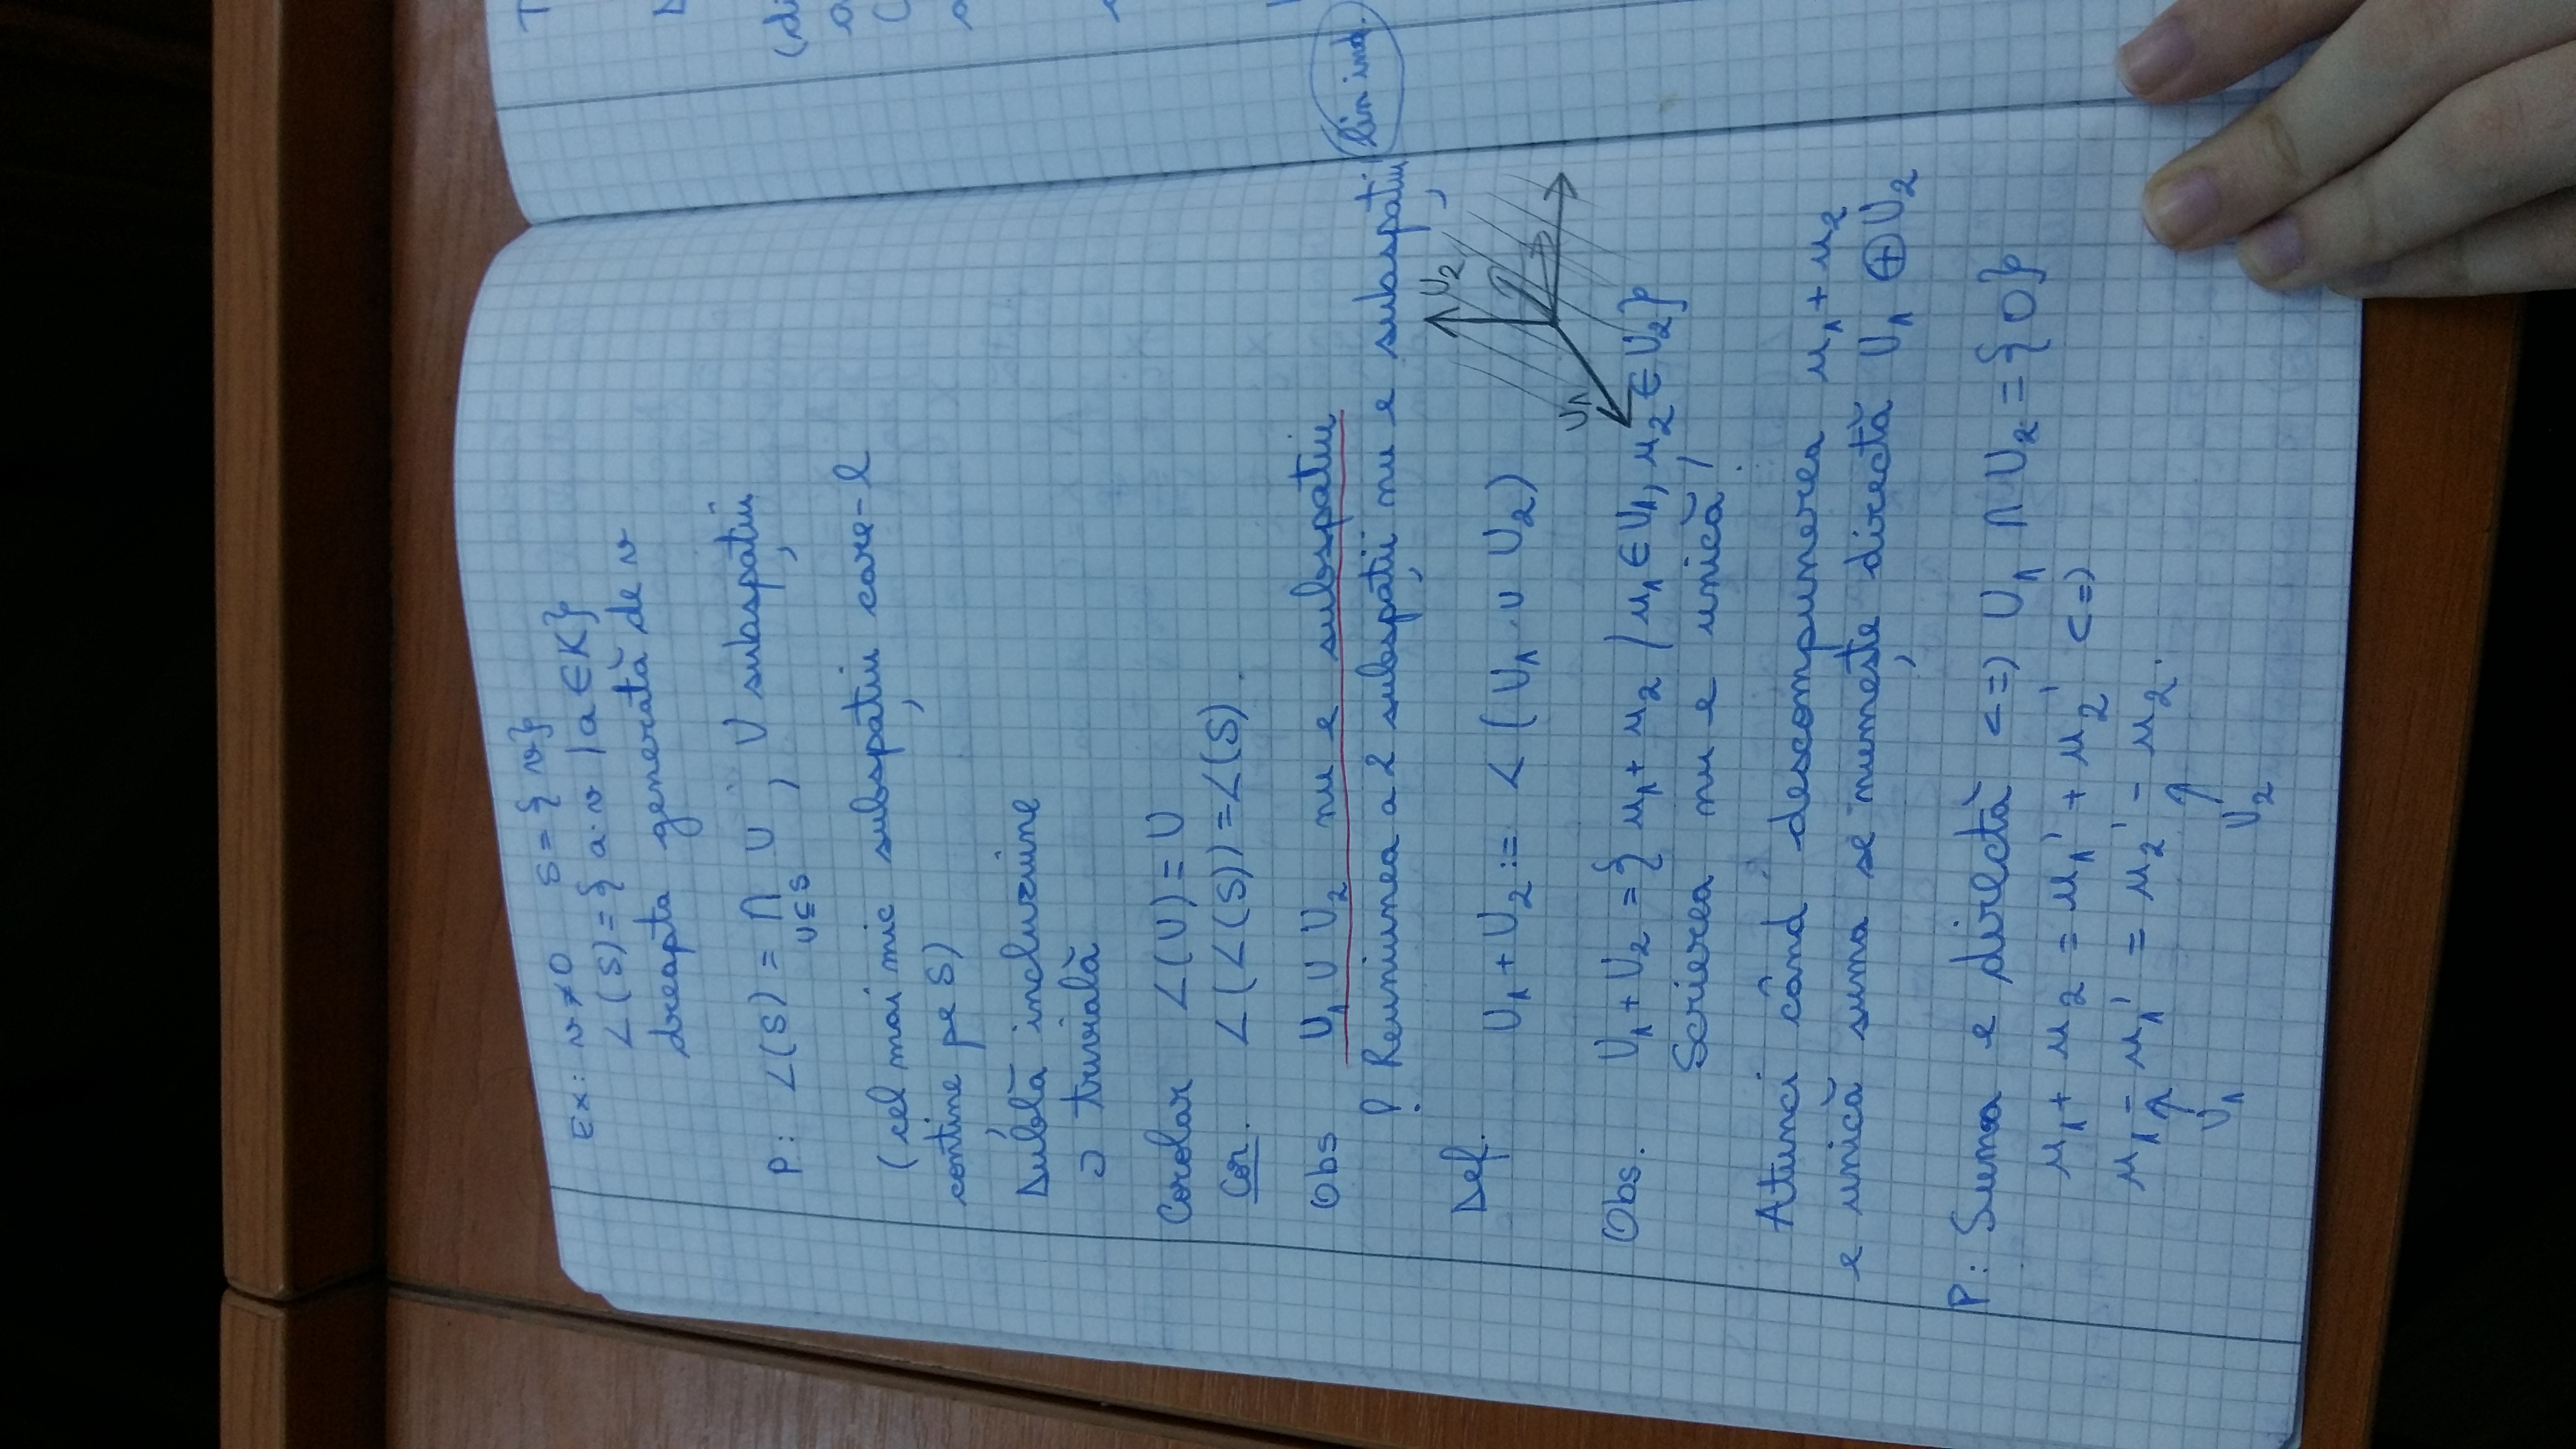 Ex: v≠0 S={v}
L(S)={a·v | a∈K}
dreapta generată de v
P: L(S) = ∩ U ; U subspațiu
U⊆S
(cel mai mic subspațiu care-l
conține pe S)
Dublă incluziune
⊃ trivială
Corolar L(U)=U
Cor. L(L(S))=L(S).
Obs U₁ ∪ U₂ nu e subspatiu
! Reuniunea a 2 subspații nu e subspațiu
lin ind.
Def.
U₂
U₁+U₂ := L(U₁ ∪ U₂)
U₁
Obs. U₁+U₂ = {u₁+u₂ / u₁∈U₁, u₂∈U₂}
Scrierea nu e unică!
Atunci când descompunerea u₁+u₂
e unică suma se numește directă U₁ ⊕ U₂
P: Suma e directă <=> U₁ ∩ U₂ = {0}
u₁+u₂ = u₁'+u₂' <=>
u₁-u₁' = u₂'-u₂.
U₁ U₂